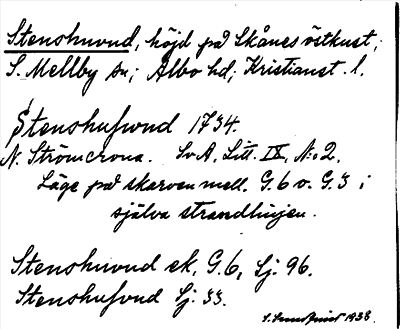 Stenshuvud, höjd på Skånes östkust;
S. Mellby sn; Albo hd; Kristianst. l.
Stenshufwud 1734.
N. Strömcrona. SvA, Litt. IX, No 2.
Läge på skarven mell. G.6 o. G.3 i
själva strandlinjen.
Stenshuvud ek. G.6, Sj. 96.
Stenshufvud Sj. 33.
1938.